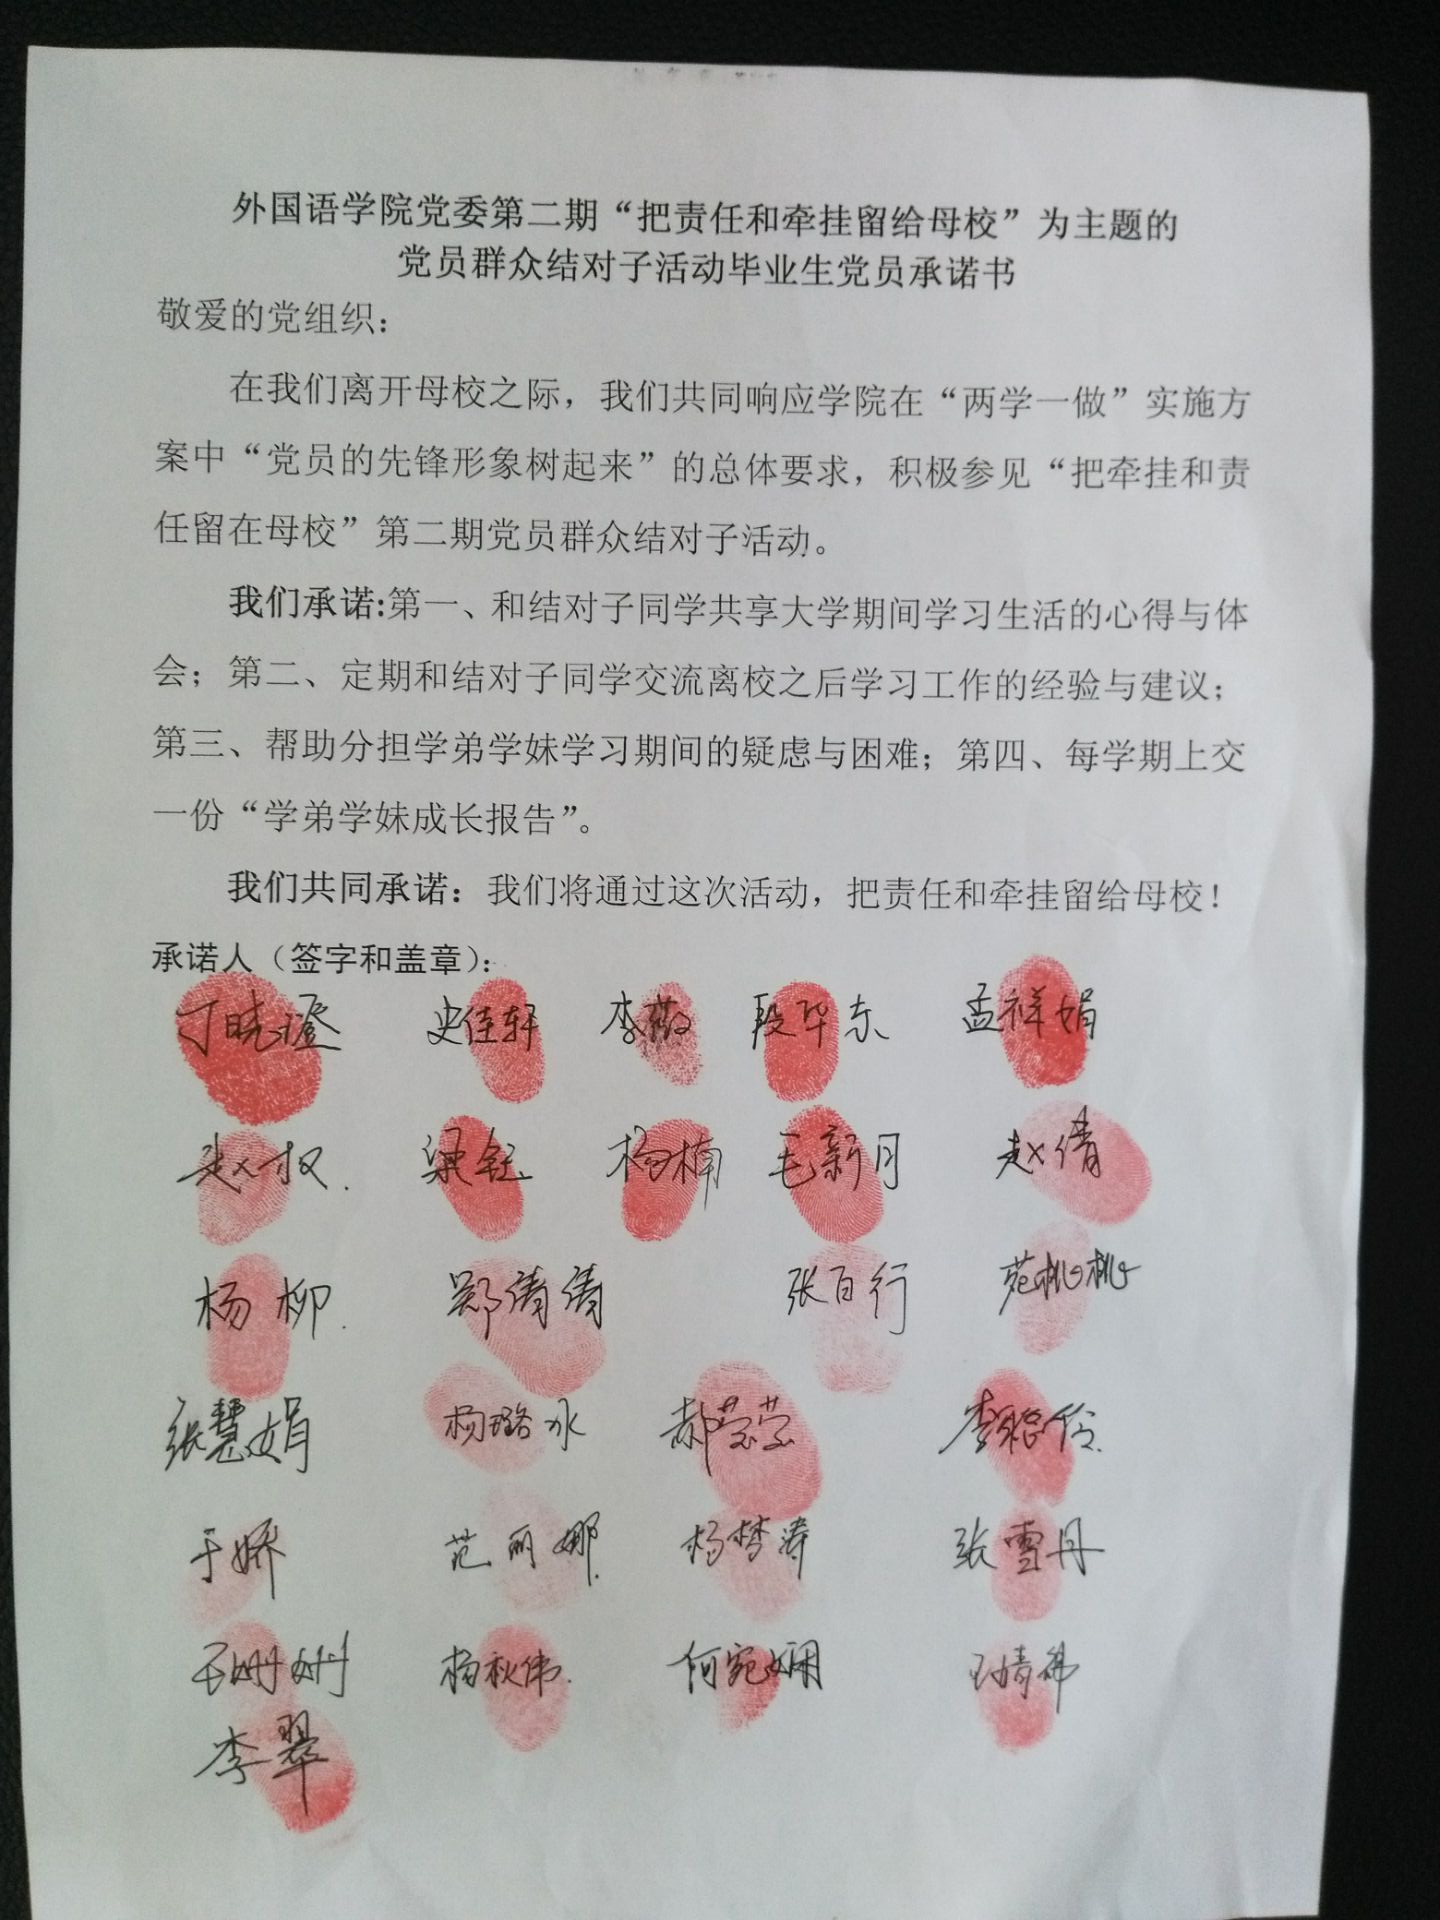 外国语学院党委第二期“把责任和牵挂留给母校”为主题的
党员群众结对子活动毕业生党员承诺书
敬爱的党组织：
在我们离开母校之际，我们共同响应学院在“两学一做”实施方
案中“党员的先锋形象树起来”的总体要求，积极参见“把牵挂和责
任留在母校”第二期党员群众结对子活动。
我们承诺:第一、和结对子同学共享大学期间学习生活的心得与体
会；第二、定期和结对子同学交流离校之后学习工作的经验与建议；
第三、帮助分担学弟学妹学习期间的疑虑与困难；第四、每学期上交
一份“学弟学妹成长报告”。
我们共同承诺：我们将通过这次活动，把责任和牵挂留给母校！
承诺人（签字和盖章）：
丁晓瑬 史佳轩 李薇 段毕东 孟祥娟
赵权. 梁钰 杨楠 毛新月 赵倩
杨柳. 郑倩倩 张百行 范桃桃
张慧娟 杨璐冰 郝莹莹 李聪伶.
于娇 范丽娜. 杨梦涛 张雪丹
王姗姗 杨秋伟. 何宛娴
李翠